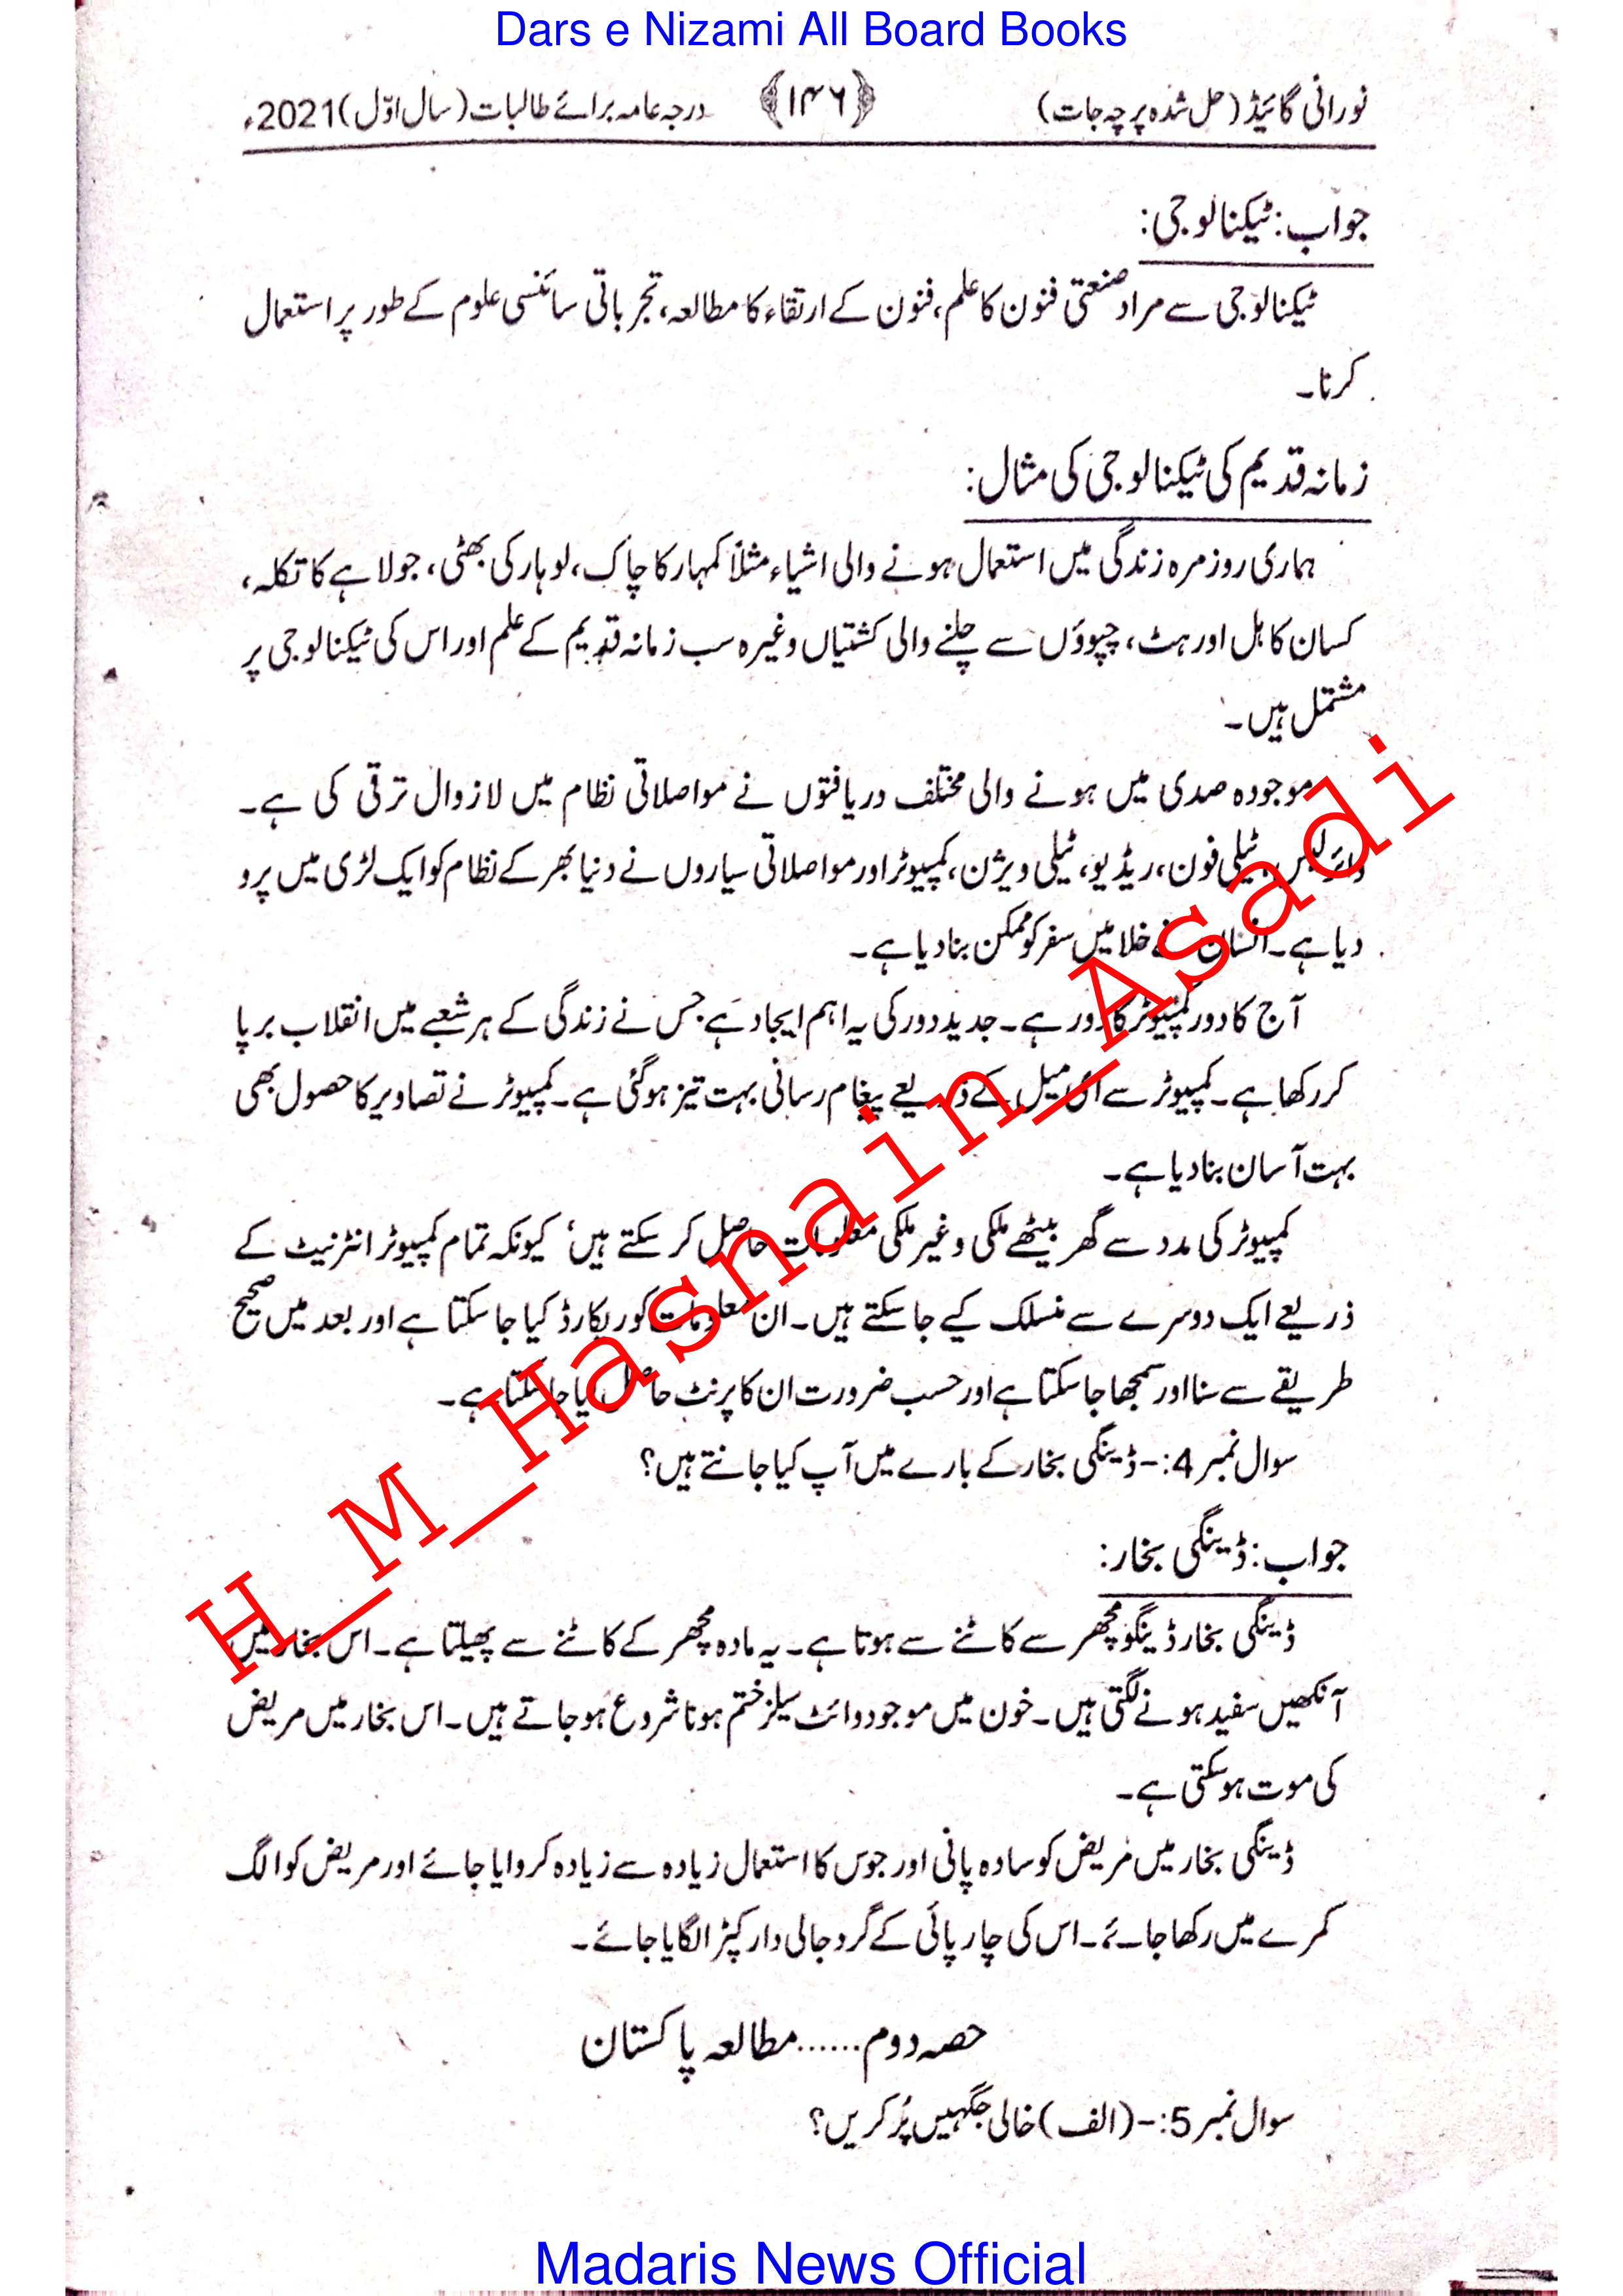 Dars e Nizami All Board Books
نورانی گائیڈ (حل شدہ پرچہ جات) ﴿۱۴۶﴾ درجہ عامہ برائے طالبات (سال اوّل) 2021ء
جواب: ٹیکنالوجی:
ٹیکنالوجی سے مراد صنعتی فنون کا علم، فنون کے ارتقاء کا مطالعہ، تجرباتی سائنسی علوم کے طور پر استعمال
کرنا۔
زمانہ قدیم کی ٹیکنالوجی کی مثال:
ہماری روزمرہ زندگی میں استعمال ہونے والی اشیاء مثلاً کمہار کا چاک، لوہار کی بھٹی، جولاہے کا تکلہ،
کسان کا ہل اور ہٹ، چپوؤں سے چلنے والی کشتیاں وغیرہ سب زمانہ قدیم کے علم اور اس کی ٹیکنالوجی پر
مشتمل ہیں۔
موجودہ صدی میں ہونے والی مختلف دریافتوں نے مواصلاتی نظام میں لازوال ترقی کی ہے۔
وائرلیس، ٹیلی فون، ریڈیو، ٹیلی ویژن، کمپیوٹر اور مواصلاتی سیاروں نے دنیا بھر کے نظام کو ایک لڑی میں پرو
دیا ہے۔ انسان نے خلا میں سفر کو ممکن بنا دیا ہے۔
آج کا دور کمپیوٹر کا دور ہے۔ جدید دور کی یہ اہم ایجاد ہے جس نے زندگی کے ہر شعبے میں انقلاب برپا
کر رکھا ہے۔ کمپیوٹر سے ای میل کے ذریعے پیغام رسانی بہت تیز ہوگئی ہے۔ کمپیوٹر نے تصاویر کا حصول بھی
بہت آسان بنا دیا ہے۔
کمپیوٹر کی مدد سے گھر بیٹھے ملکی و غیر ملکی معلومات حاصل کر سکتے ہیں، کیونکہ تمام کمپیوٹر انٹرنیٹ کے
ذریعے ایک دوسرے سے منسلک کیے جا سکتے ہیں۔ ان معلومات کو ریکارڈ کیا جا سکتا ہے اور بعد میں صحیح
طریقے سے سنا اور سمجھا جا سکتا ہے اور حسب ضرورت ان کا پرنٹ حاصل کیا جا سکتا ہے۔
سوال نمبر 4:- ڈینگی بخار کے بارے میں آپ کیا جانتے ہیں؟
جواب: ڈینگی بخار:
ڈینگی بخار ڈینگو مچھر سے کاٹنے سے ہوتا ہے۔ یہ مادہ مچھر کے کاٹنے سے پھیلتا ہے۔ اس بخار میں
آنکھیں سفید ہونے لگتی ہیں۔ خون میں موجود وائٹ سیلز ختم ہونا شروع ہو جاتے ہیں۔ اس بخار میں مریض
کی موت ہو سکتی ہے۔
ڈینگی بخار میں مریض کو سادہ پانی اور جوس کا استعمال زیادہ سے زیادہ کروایا جائے اور مریض کو الگ
کمرے میں رکھا جائے۔ اس کی چارپائی کے گرد جالی دار کپڑا لگایا جائے۔
حصہ دوم......مطالعہ پاکستان
سوال نمبر 5:- (الف) خالی جگہیں پُر کریں؟
H_M_Hasnain_Asadi
Madaris News Official